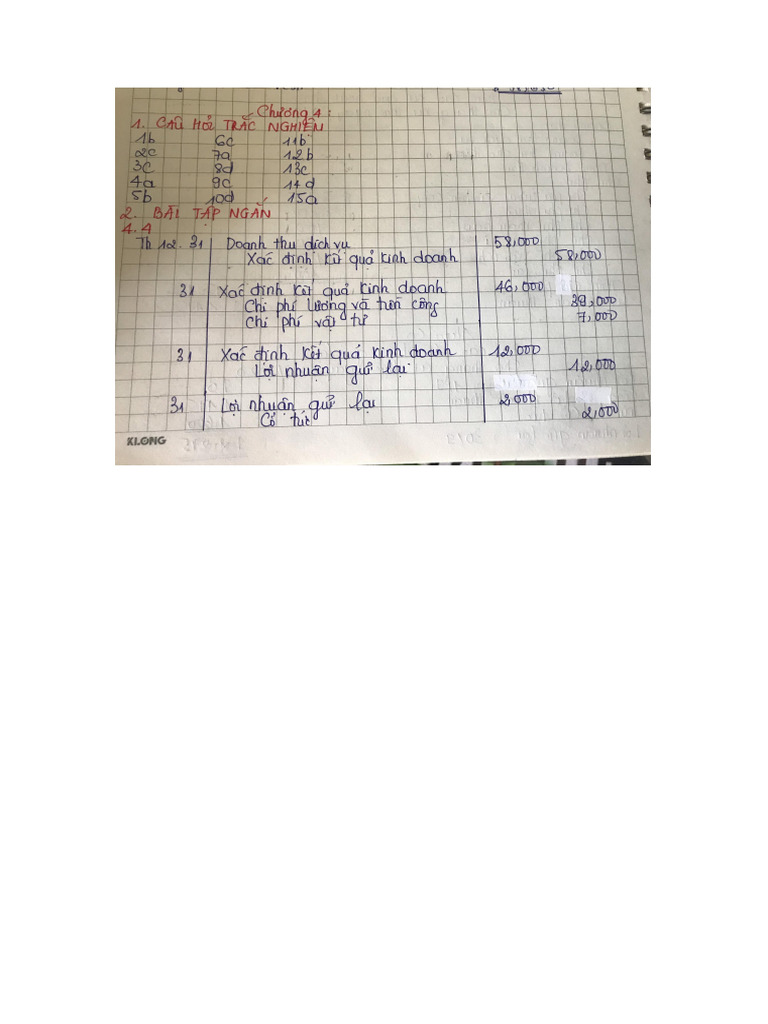 Chương 4:
1. CÂU HỎI TRẮC NGHIỆM
1b 6c 11b
2c 7a 12b
3c 8d 13c
4a 9c 14d
5b 10d 15a
2. BÀI TẬP NGẮN
4.4
Th 12. 31 Doanh thu dịch vụ 58,000
Xác định kết quả kinh doanh 58,000
31 Xác định kết quả kinh doanh 46,000
Chi phí lương và tiền công 39,000
Chi phí vật tư 7,000
31 Xác định kết quả kinh doanh 12,000
Lợi nhuận giữ lại 12,000
31 Lợi nhuận giữ lại 2.000
Cổ tức 2,000
KLONG